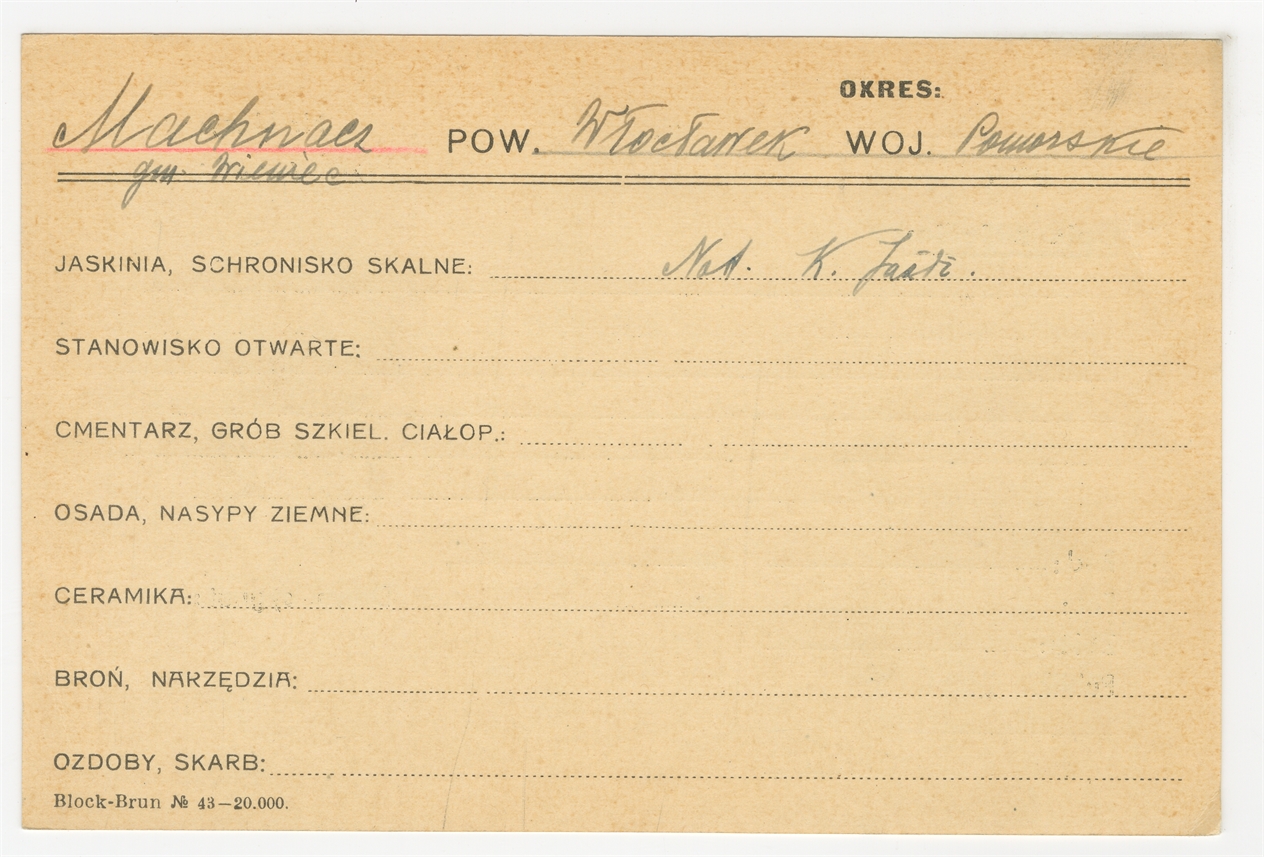 OKRES:
Machnacz POW. Włocławek WOJ. Pomorskie
gm. Wieniec
JASKINIA, SCHRONISKO SKALNE: Not. K. Jażdż.
STANOWISKO OTWARTE:
CMENTARZ, GRÓB SZKIEL. CIAŁOP.:
OSADA, NASYPY ZIEMNE:
CERAMIKA:
BROŃ, NARZĘDZIA:
OZDOBY, SKARB:
Block-Brun № 43—20.000.